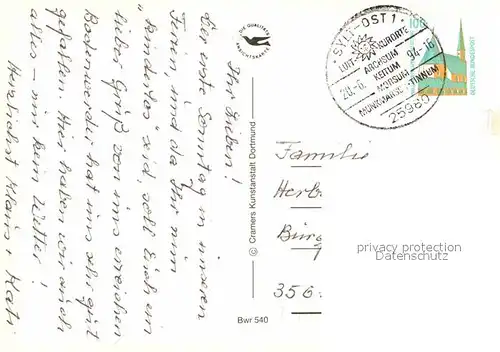 Ihr Lieben!
Der erste Sonntag in unseren
Ferien, und da Ihr nun
"kinderlos" seid, soll Euch ein
lieber Gruß von uns erreichen.
Bodenwerder hat uns sehr gut
gefallen. Hier haben wir auch
alles - nur kein Wetter!
Herzlichst Klaus + Kath
DIE QUALITÄTS
ANSICHTSKARTE
© Cramers Kunstanstalt Dortmund
Bwr 540
SYLT-OST 1
LUFT KURORTE
ARCHSUM
KEITUM
MORSUM
MUNKMARSCH - TINNUM
94-16
25980
100
DEUTSCHE BUNDESPOST
Familie
Herb
Bürg
356
privacy protection
ansichtskartenversand.com